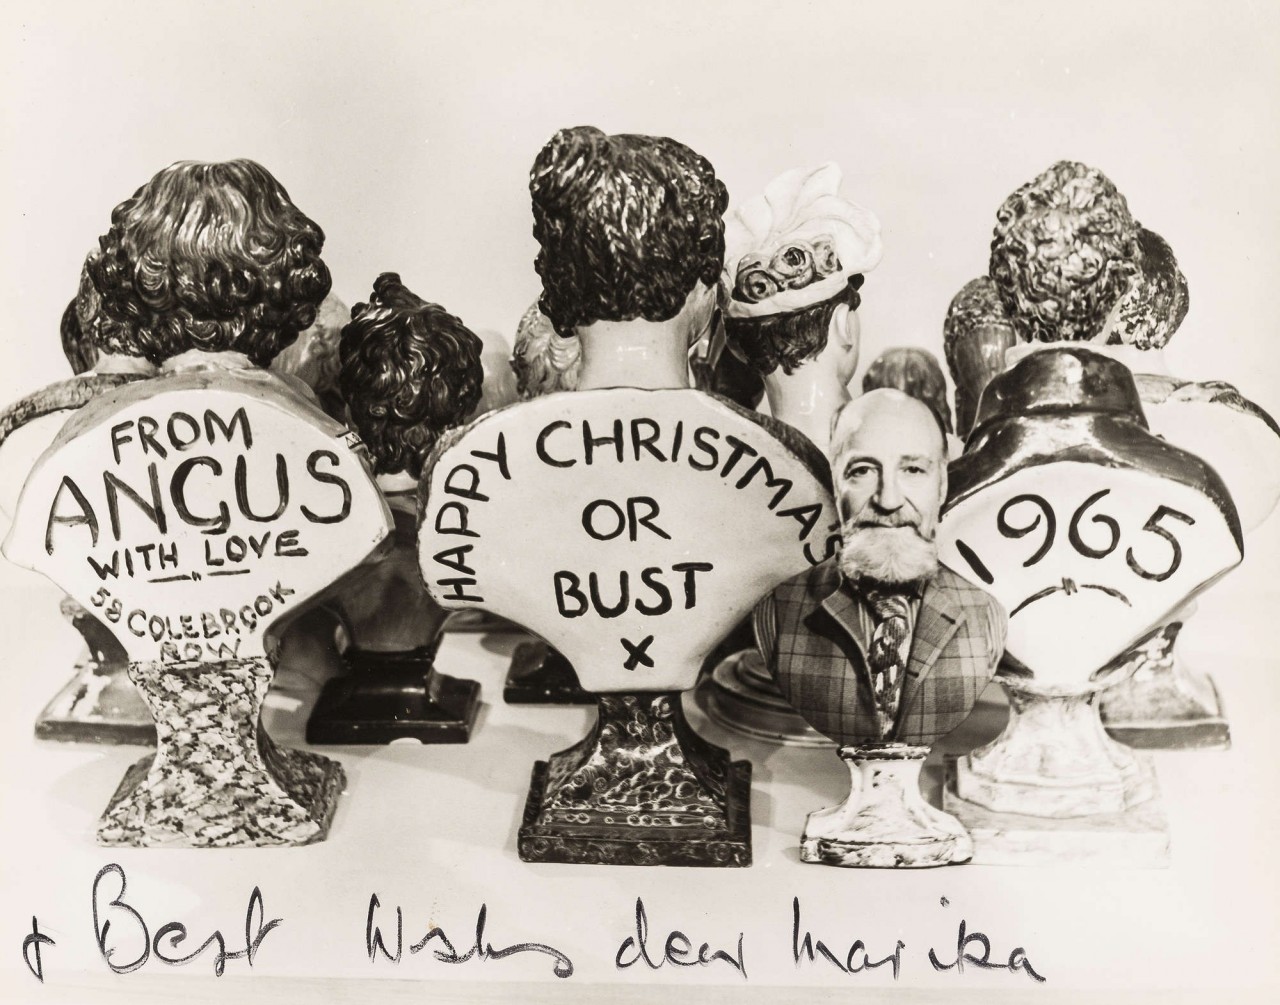 FROM
ANGUS
WITH LOVE
58 COLEBROOK
ROW
HAPPY CHRISTMAS
OR
BUST
X
1965
+ Best Wishes dear Marika